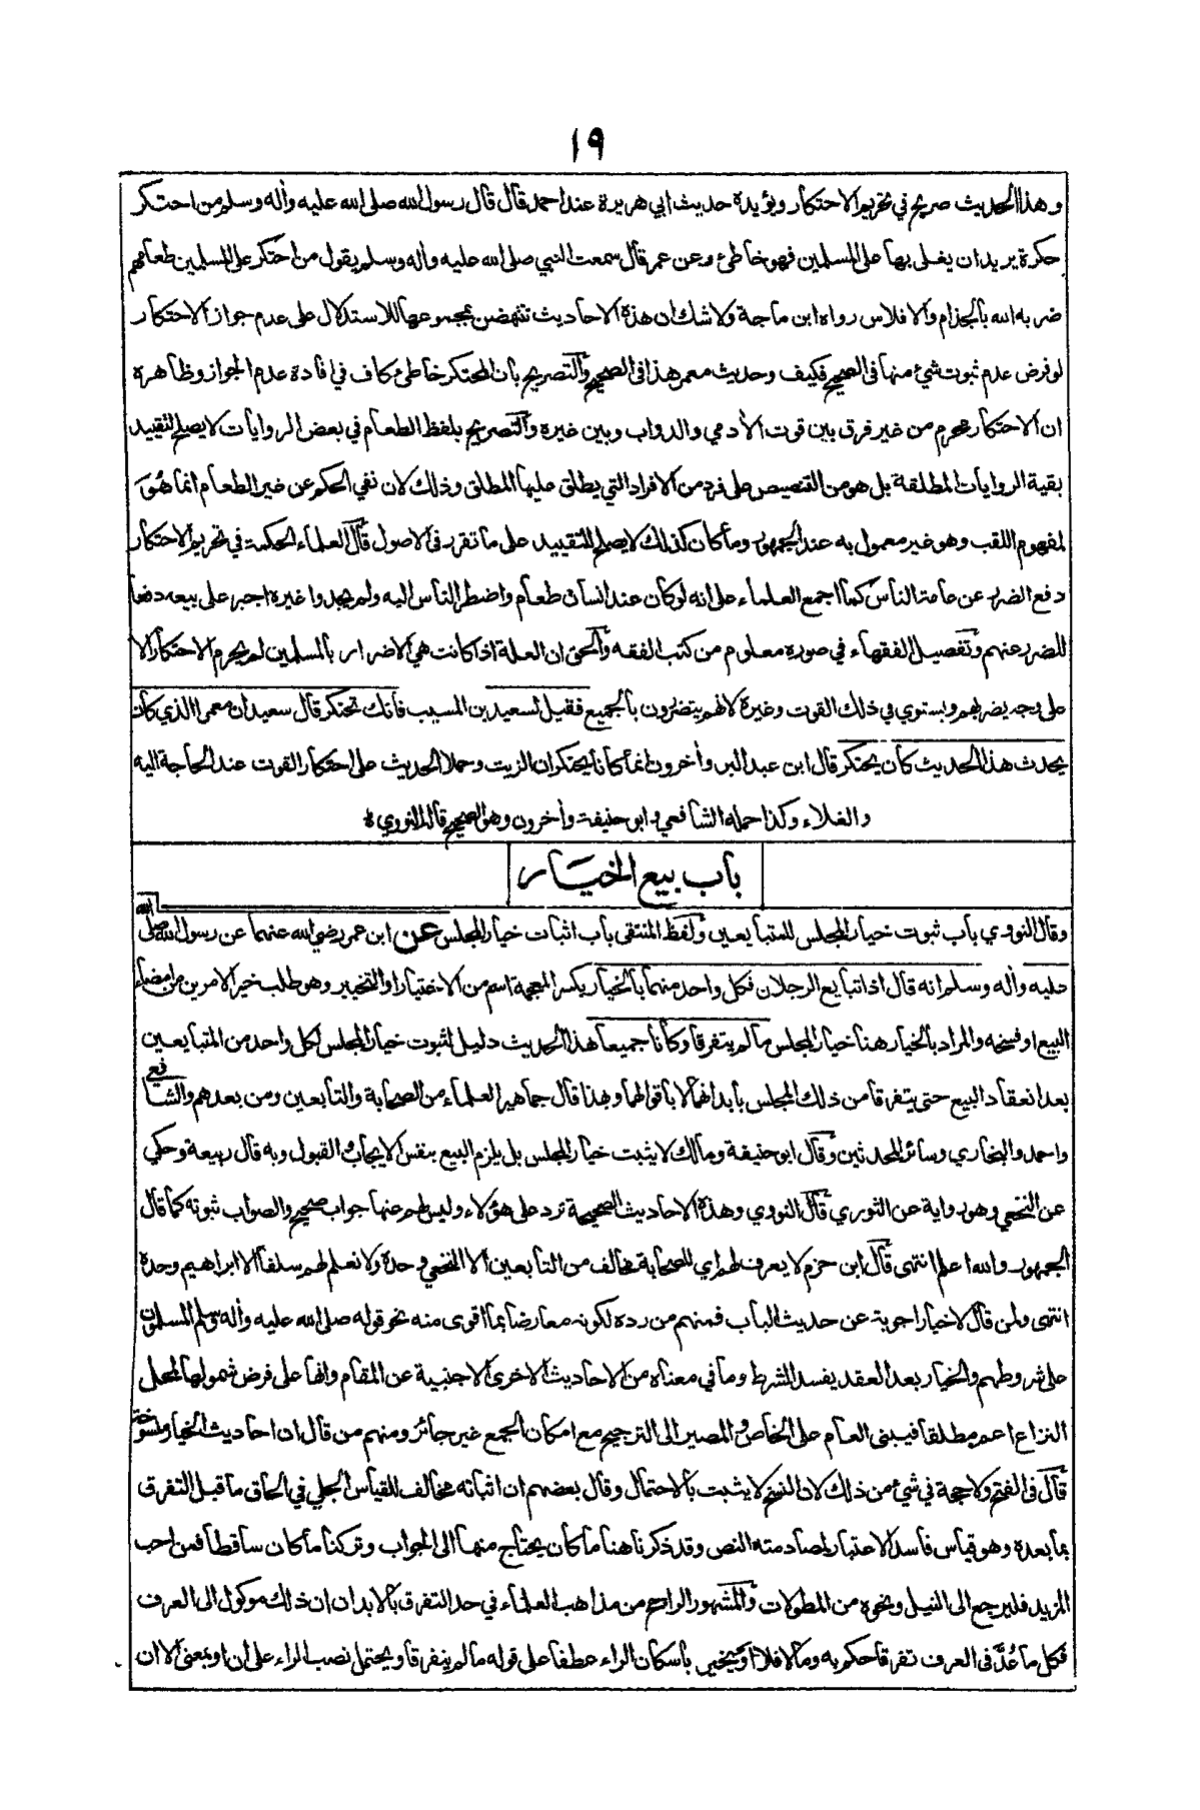 ١٩
وهذا الحديث صريح في تحريم الاحتكار ويؤيده حديث ابي هريرة عند احمد قال قال رسول الله صلى الله عليه وأله وسلم من احتكر
حكرة يريد ان يغلى بها على المسلمين فهو خاطئ وعن عمر قال سمعت النبي صلى الله عليه وأله وسلم يقول من احتكر على المسلمين طعامهم
ضربه الله بالجزام والافلاس رواه ابن ماجة ولا شك ان هذه الاحاديث تنتهض بمجموعها للاستدلال على عدم جواز الاحتكار
لو فرض عدم ثبوت شئ منها في الصحيح فكيف وحديث معمر هذا في الصحيح والتصريح بان المحتكر خاطئ كاف في افادة عدم الجواز وظاهره
ان الاحتكار محرم من غير فرق بين قوت الأدمي والدواب وبين غيره والتصريح بلفظ الطعام في بعض الروايات لا يصلح لتقييد
بقية الروايات المطلقة بل هو من التنصيص على فرد من الافراد التي يطلق عليها المطلق وذلك لان نفي الحكم عن غير الطعام انما هُوَ
لمفهوم اللقب وهو غير معمول به عند الجمهور وما كان كذلك لا يصلح للتقييد على ما تقرر في الاصول قال العلماء الحكمة في تحريم الاحتكار
دفع الضرر عن عامة الناس كما اجمع العلماء على انه لو كان عند انسان طعام واضطر الناس اليه ولم يجدوا غيره اجبر على بيعه دفعا
للضرر عنهم وتفصيل الفقهاء في صوره معلوم من كتب الفقه والحق ان العلة اذا كانت هي الاضرار بالمسلمين لم يحرم الاحتكار الا
على وجه يضر بهم ويستوي في ذلك القوت وغيره لانهم يتضررون بالجميع فقيل لسعيد بن المسيب فانك تحتكر قال سعيد ان معمرا الذي كان
يحدث هذا الحديث كان يحتكر قال ابن عبد البر وأخرون انما كانا يحتكران الزيت وحملا الحديث على احتكار القوت عند الحاجة اليه
والغلاء وكذا حمله الشافعي وابو حنيفة وأخرون وهو الصحيح قاله النووي
باب بيع الخيار
وقال النووي باب ثبوت خيار المجلس للمتبايعين ولفظ المنتقى باب اثبات خيار المجلس عن ابن عمر رضي الله عنهما عن رسول الله صلى الله
عليه وأله وسلم انه قال اذا تبايع الرجلان فكل واحد منهما بالخيار بكسر المعجمة اسم من الاختيار او التخيير وهو طلب خير الامرين من امضاء
البيع او فسخه والمراد بالخيار هنا خيار المجلس ما لم يتفرقا وكانا جميعا هذا الحديث دليل لثبوت خيار المجلس لكل واحد من المتبايعين
بعد انعقاد البيع حتى يتفرقا من ذلك المجلس بابدانهما لا باقوالهما وبهذا قال جماهير العلماء من الصحابة والتابعين ومن بعدهم والشافعي
واحمد والبخاري وسائر المحدثين وقال ابو حنيفة ومالك لا يثبت خيار المجلس بل يلزم البيع بنفس الايجاب والقبول وبه قال ربيعة وحكي
عن النخعي وهو رواية عن الثوري قال النووي وهذه الاحاديث الصحيحة ترد على هؤلاء وليس لهم عنها جواب صحيح والصواب ثبوته كما قال
الجمهور والله اعلم انتهى قال ابن حزم لا يعرف لهم اي للصحابة مخالف من التابعين الا النخعي وحده ولا نعلم لهم سلفا الا ابراهيم وحده
انتهى ولمن قال لا خيار اجوبة عن حديث الباب فمنهم من رده لكونه معارضا بما اقوى منه نحو قوله صلى الله عليه وأله وسلم المسلمون
على شروطهم والخيار بعد العقد يفسد الشرط وما في معناه من الاحاديث الاخرى الاجنبية عن المقام وانها على فرض شمولها لمحل
النزاع اعم مطلقا فيبنى العام على الخاص والمصير الى الترجيح مع امكان الجمع غير جائز ومنهم من قال ان احاديث الخيار منسوخة
قال في الفتح ولا حجة في شئ من ذلك لان النسخ لا يثبت بالاحتمال وقال بعضهم ان اثباته مخالف للقياس الجلي في الحاق ما قبل التفرق
بما بعده وهو قياس فاسد الاعتبار لمصادمته النص وقد ذكرنا هنا ما كان يحتاج منها الى الجواب وتركنا ما كان ساقطا فمن احب
المزيد فليرجع الى النيل ونحوه من المطولات والمشهور الراجح من مذاهب العلماء في حد التفرق بالابدان ان ذلك موكول الى العرف
فكل ما عُدَّ في العرف تفرقا حكم به وما لا فلا او يخير باسكان الراء عطفا على قوله ما لم يتفرقا ويحتمل نصب الراء على ان او بمعنى الا ان